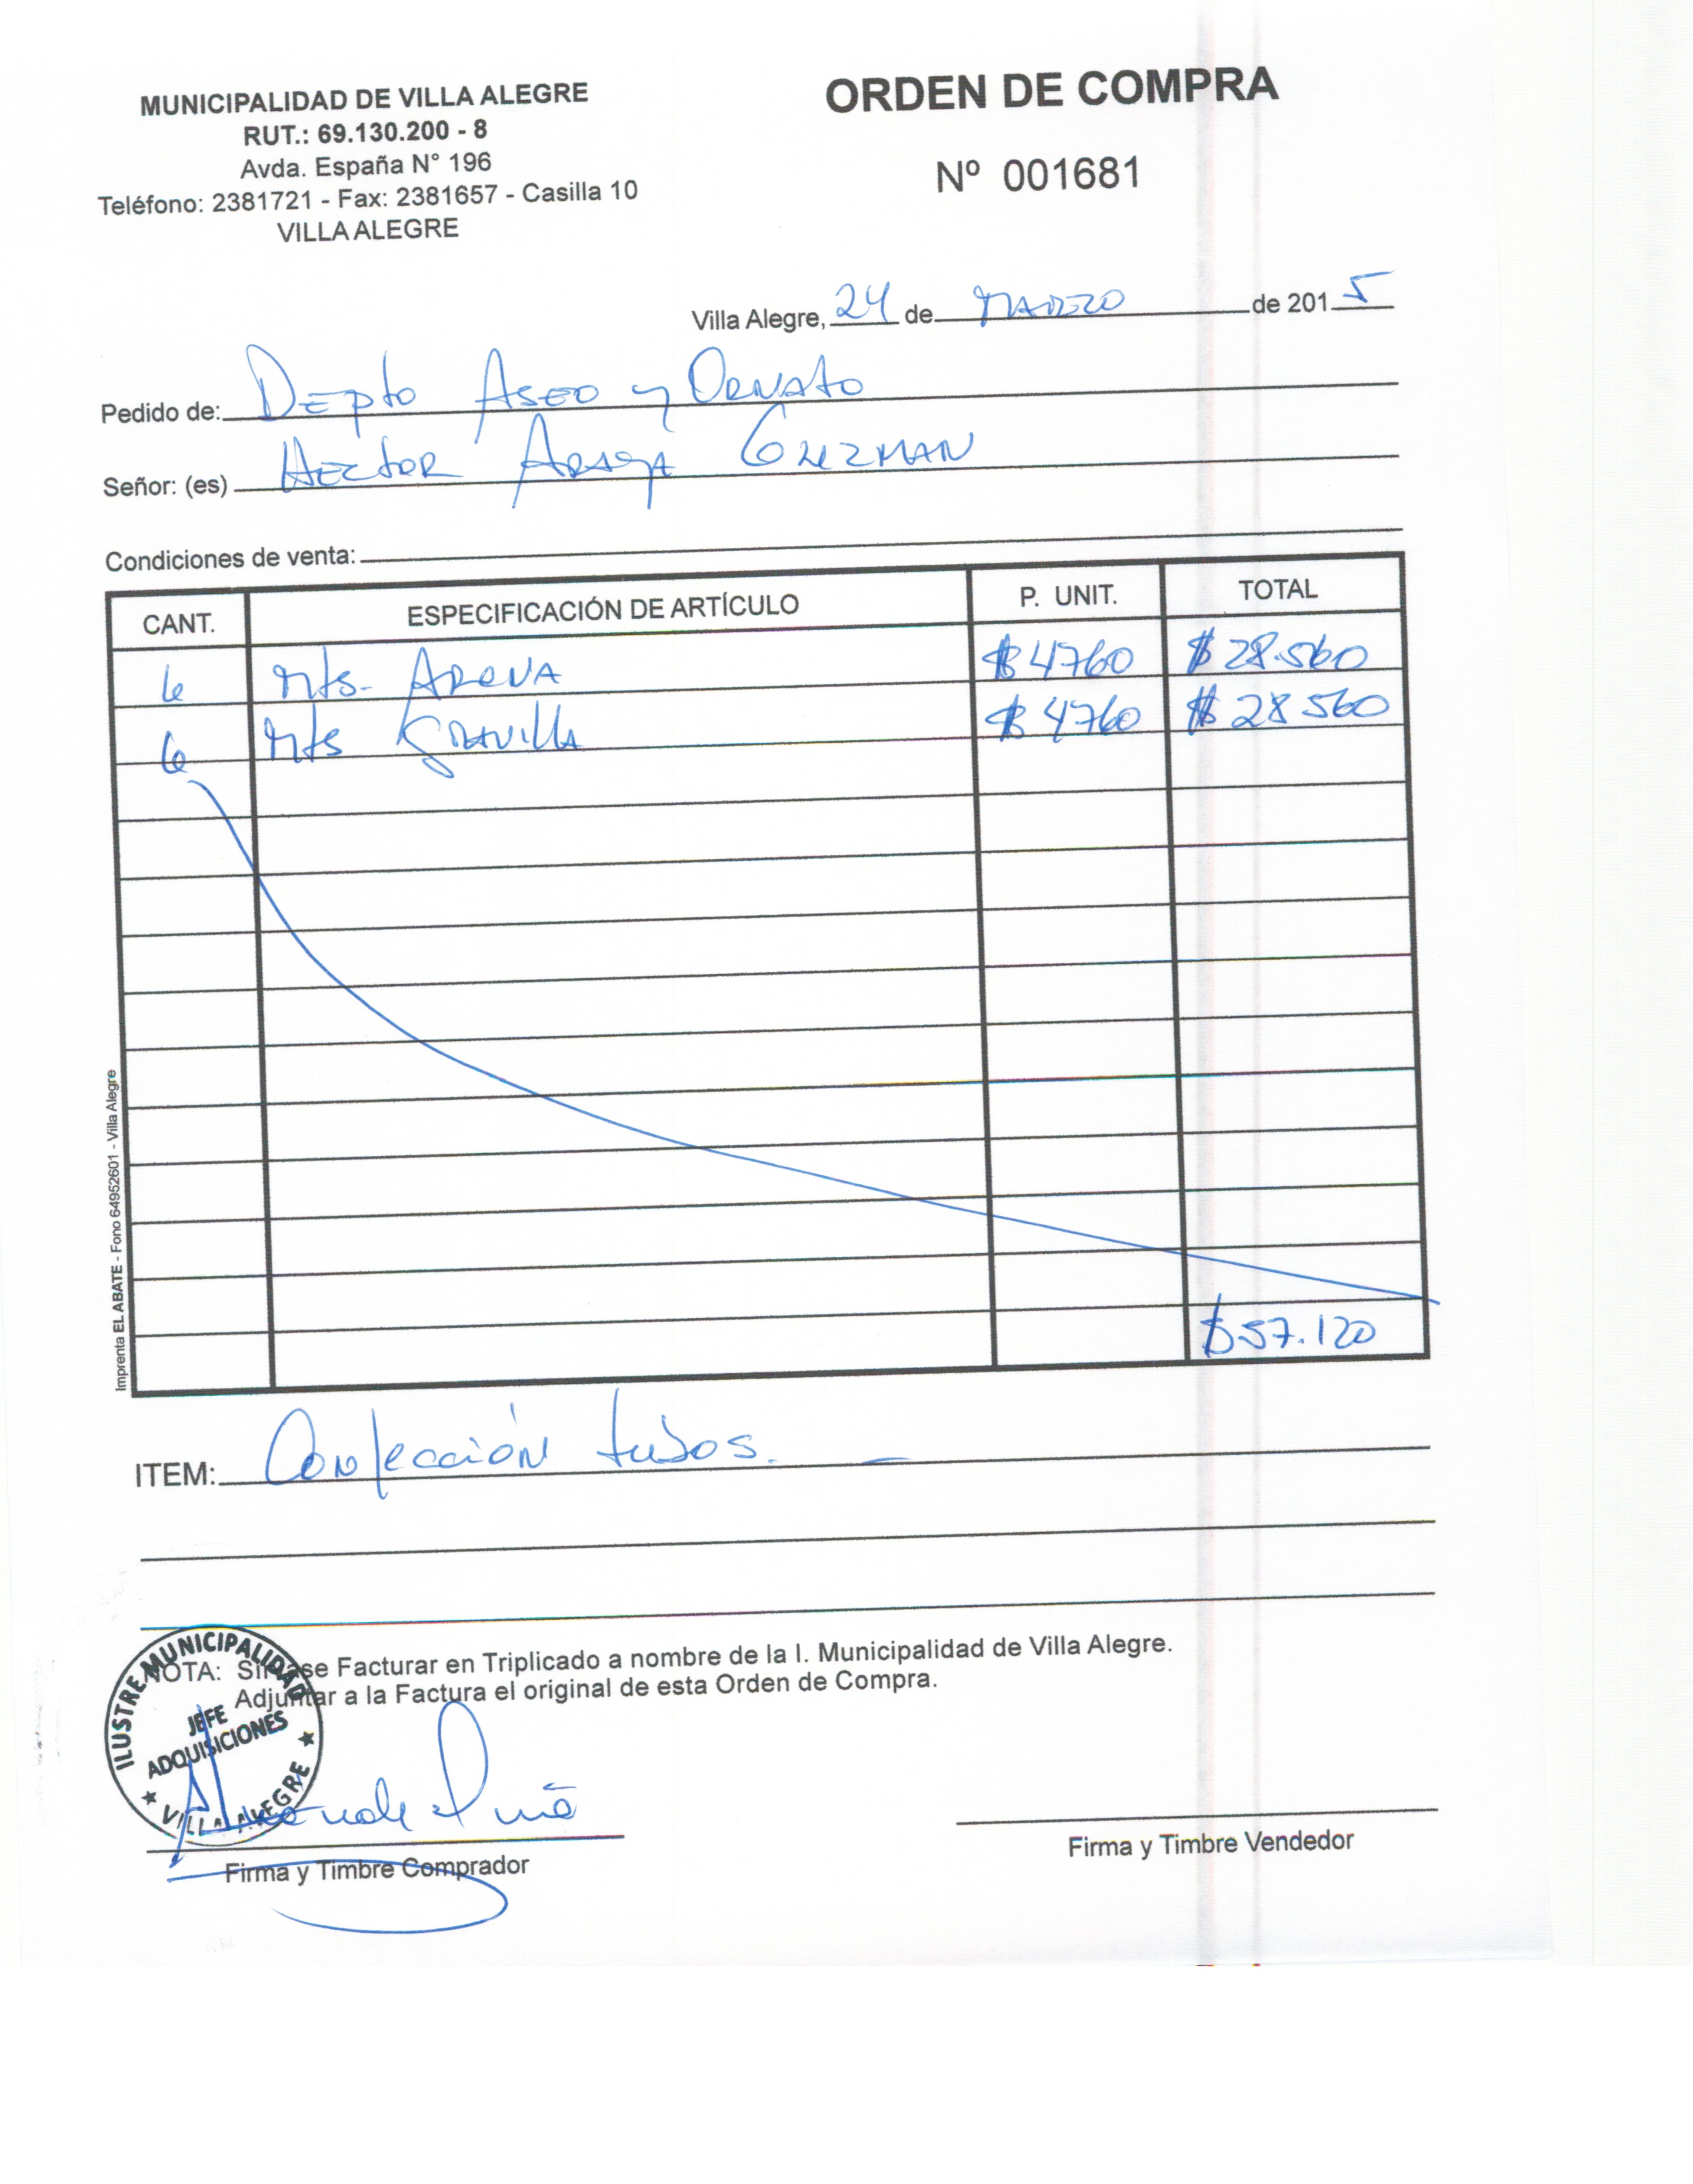 MUNICIPALIDAD DE VILLA ALEGRE
RUT.: 69.130.200 - 8
Avda. España N° 196
Teléfono: 2381721 - Fax: 2381657 - Casilla 10
VILLA ALEGRE
ORDEN DE COMPRA
Nº 001681
Villa Alegre, 24 de MARZO de 2015
Pedido de: DEpto ASEO y ORNATO
Señor: (es) HECTOR ARAYA GUZMAN
Condiciones de venta:
CANT. ESPECIFICACIÓN DE ARTÍCULO P. UNIT. TOTAL
6 Mts. ARENA $4760 $28.560
6 Mts GRAVILLA $4760 $28560
$57.120
ITEM: Confección tubos.
Imprenta EL ABATE - Fono 64952601 - Villa Alegre
NOTA: Sírvase Facturar en Triplicado a nombre de la I. Municipalidad de Villa Alegre.
Adjuntar a la Factura el original de esta Orden de Compra.
ILUSTRE MUNICIPALIDAD
JEFE
ADQUISICIONES
VILLA ALEGRE
Firma y Timbre Comprador
Firma y Timbre Vendedor